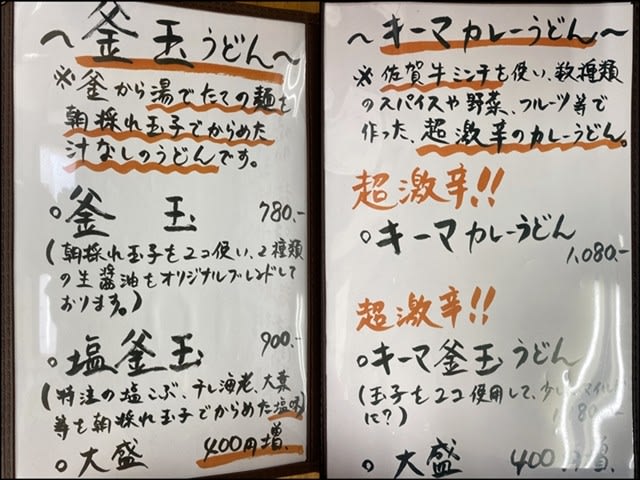 ～釜玉うどん～
※釜から湯でたての麺を
朝採れ玉子でからめた
汁なしのうどんです。
○釜 玉 780.-
(朝採れ玉子を2コ使い、2種類
の生醤油をオリジナルブレンドして
おります。)
○塩釜玉 900.-
(特注の塩こぶ、干し海老、大葉
等を朝採れ玉子でからめた塩味)
○大盛 400円増.
～キーマカレーうどん～
※佐賀牛ミンチを使い、数種類
のスパイスや野菜、フルーツ等で
作った、超激辛のカレーうどん。
超激辛!!
○キーマカレーうどん
1,080.-
超激辛!!
○キーマ釜玉うどん
(玉子を2コ使用して、少しマイルド
に?) 1,180.-
○大盛 400円増.